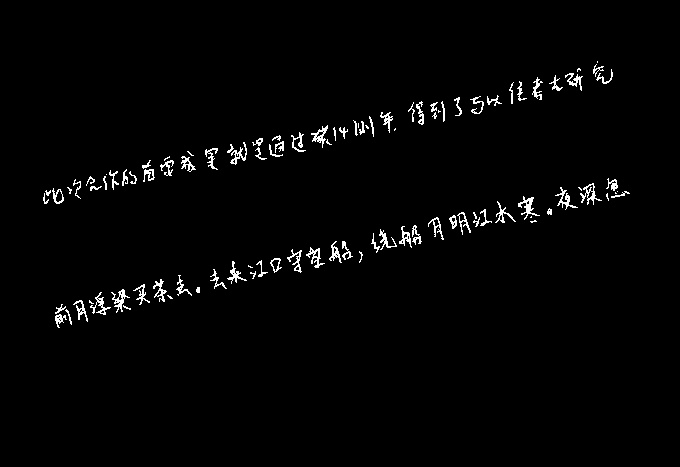 此次合作的首要成果就是通过碳14测年.得到了与以往考古研究
前月浮梁买茶去。去来江口守空船,绕船月明江水寒。夜深忽